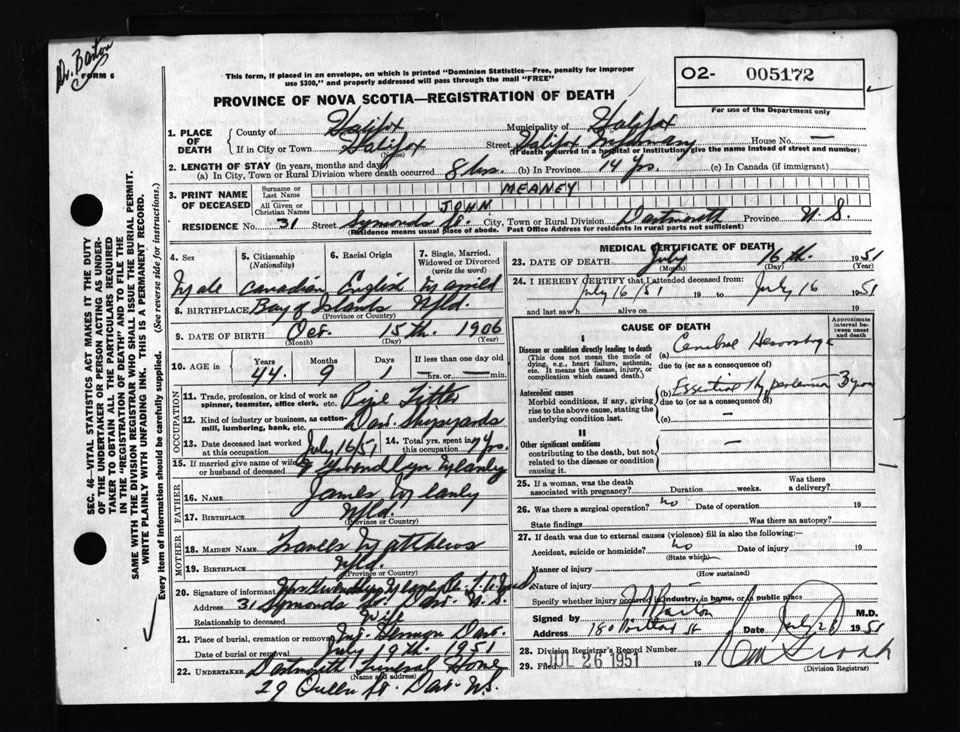 Dr. Barton
FORM 6
This form, if placed in an envelope, on which is printed "Dominion Statistics—Free, penalty for improper
use $300," and properly addressed will pass through the mail "FREE"
O2- 005172
For use of the Department only
PROVINCE OF NOVA SCOTIA—REGISTRATION OF DEATH
1. PLACE OF DEATH
County of Halifax Municipality of Halifax
If in City or Town Halifax Street Halifax Infirmary House No. —
(Name) (If death occurred in a hospital or institution, give the name instead of street and number)
2. LENGTH OF STAY (in years, months and days)
(a) In City, Town or Rural Division where death occurred 8 hrs. (b) In Province 14 yrs. (c) In Canada (if immigrant)
3. PRINT NAME OF DECEASED
Surname or Last Name MEANEY
All Given or Christian Names JOHN
RESIDENCE No. 31 Street Symonds St. City, Town or Rural Division Dartmouth Province N.S.
(Residence means usual place of abode. Post Office Address for residents in rural parts not sufficient)
4. Sex
5. Citizenship (Nationality)
6. Racial Origin
7. Single, Married, Widowed or Divorced (write the word)
Male Canadian English Married
8. BIRTHPLACE Bay of Islands Nfld.
(Province or Country)
9. DATE OF BIRTH Oct. 15th. 1906
(Month) (Day) (Year)
10. AGE in
Years Months Days If less than one day old
44 9 1 — hrs. or — min.
OCCUPATION
11. Trade, profession, or kind of work as spinner, teamster, office clerk, etc. Pipe Fitter
12. Kind of industry or business, as cotton-mill, lumbering, bank, etc. Dart. Shipyards
13. Date deceased last worked at this occupation July 16/51
14. Total yrs. spent in this occupation 9 yrs.
15. If married give name of wife or husband of deceased Gwendlyn Meaney
FATHER
16. Name James Meaney
17. BIRTHPLACE Nfld.
(Province or Country)
MOTHER
18. MAIDEN NAME Frances Matthews
19. BIRTHPLACE Nfld.
(Province or Country)
20. Signature of informant Mrs Gwendlyn Meaney
Address 31 Symonds St. Dart. N.S.
Relationship to deceased Wife
21. Place of burial, cremation or removal Mt. Hermon Dart.
Date of burial or removal July 19th. 1951
22. UNDERTAKER Dartmouth Funeral Home
(Name and address)
29 Queen St. Dart. N.S.
MEDICAL CERTIFICATE OF DEATH
23. DATE OF DEATH July 16th. 1951
(Month) (Day) (Year)
24. I HEREBY CERTIFY that I attended deceased from
July 16/51 19 to July 16 1951
and last saw h alive on 19
CAUSE OF DEATH
Approximate interval between onset and death
I
Disease or condition directly leading to death
(This does not mean the mode of dying, e.g., heart failure, asthenia, etc. It means the disease, injury, or complication which caused death.)
(a) Cerebral Hemorrhage
due to (or as a consequence of)
Antecedent causes
Morbid conditions, if any, giving rise to the above cause, stating the underlying condition last.
(b) Essential Hypertension 3 yrs
due to (or as a consequence of)
(c) —
II
Other significant conditions
contributing to the death, but not related to the disease or condition causing it.
—
25. If a woman, was the death associated with pregnancy? Duration weeks. Was there a delivery?
26. Was there a surgical operation? No Date of operation 19
State findings Was there an autopsy?
27. If death was due to external causes (violence) fill in also the following:
Accident, suicide or homicide? No Date of injury 19
(State which)
Manner of injury
(How sustained)
Nature of injury
Specify whether injury occurred in industry, in home, or in public place
Signed by Barton M.D.
Address 180 Portland St Date July 20 1951
28. Division Registrar's Record Number
29. Filed JUL 26 1951 19
(Division Registrar)
SEC. 46—VITAL STATISTICS ACT MAKES IT THE DUTY
OF THE UNDERTAKER OR PERSON ACTING AS UNDER-
TAKER TO OBTAIN ALL THE PARTICULARS REQUIRED
IN THE "REGISTRATION OF DEATH" AND TO FILE THE
SAME WITH THE DIVISION REGISTRAR WHO SHALL ISSUE THE BURIAL PERMIT.
WRITE PLAINLY WITH UNFADING INK. THIS IS A PERMANENT RECORD.
Every item of information should be carefully supplied. (See reverse side for instructions.)